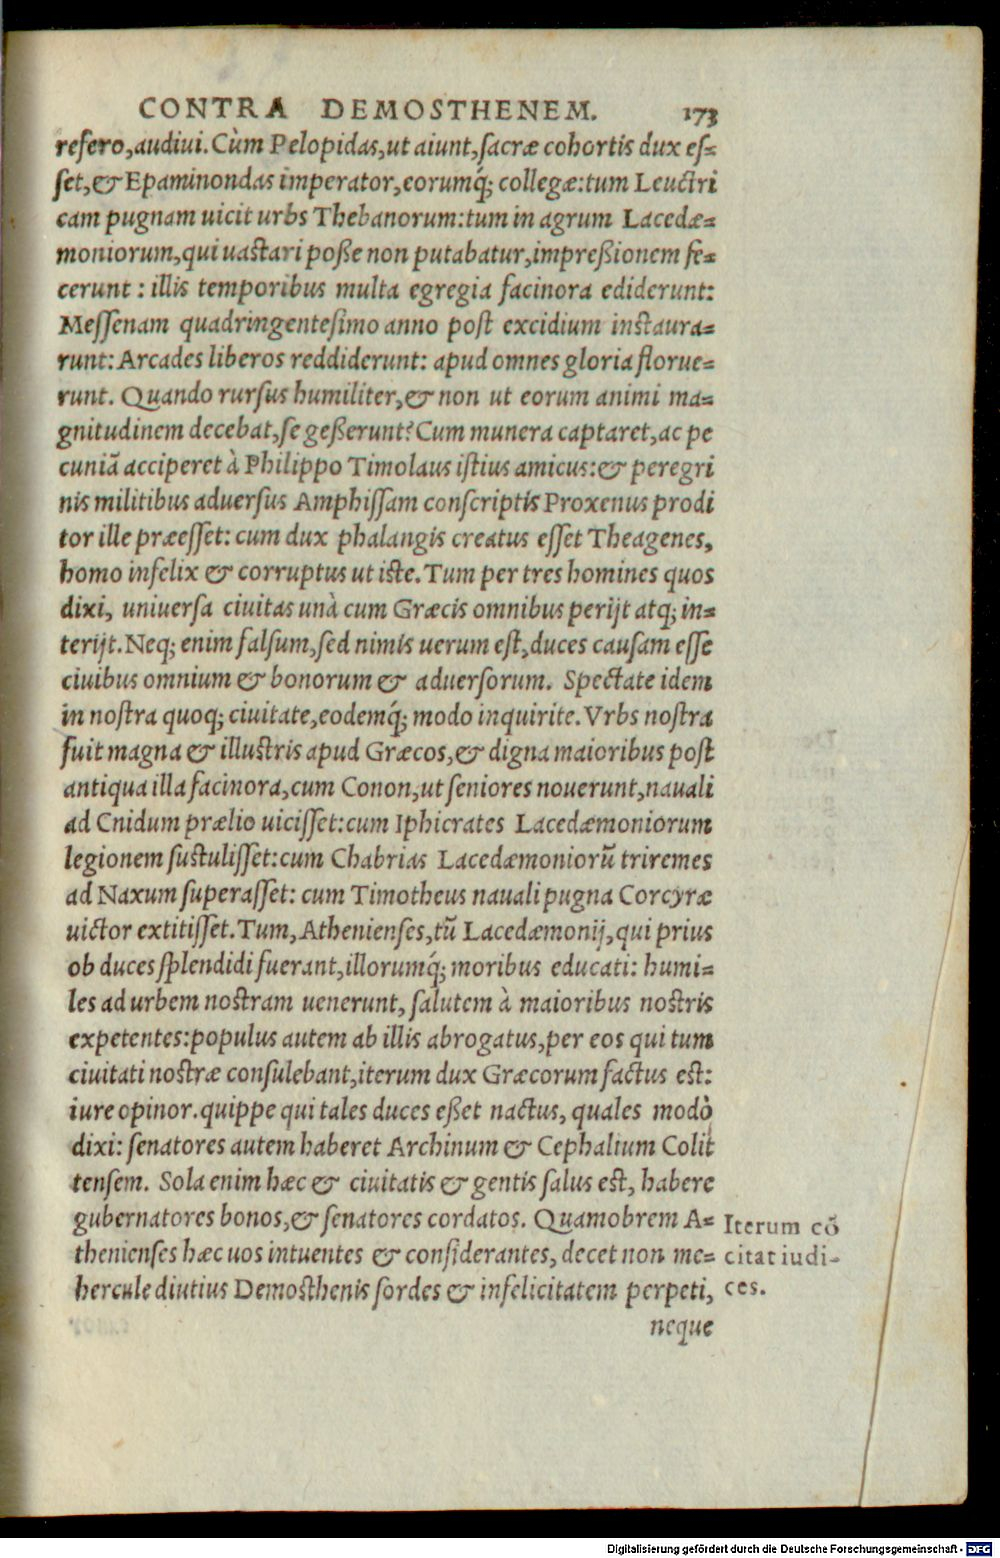 CONTRA DEMOSTHENEM. 173
refero, audiui. Cùm Pelopidas, ut aiunt, sacræ cohortis dux es=
set, & Epaminondas imperator, eorumq́; collegæ: tum Leuctri
cam pugnam uicit urbs Thebanorum: tum in agrum Lacedæ=
moniorum, qui uastari poße non putabatur, impreßionem fe=
cerunt: illis temporibus multa egregia facinora ediderunt:
Messenam quadringentesimo anno post excidium instaura=
runt: Arcades liberos reddiderunt: apud omnes gloria florue=
runt. Quando rursus humiliter, & non ut eorum animi ma=
gnitudinem decebat, se geßerunt? Cum munera captaret, ac pe
cuniã acciperet à Philippo Timolaus istius amicus: & peregri
nis militibus aduersus Amphissam conscriptis Proxenus prodi
tor ille præesset: cum dux phalangis creatus esset Theagenes,
homo infelix & corruptus ut iste. Tum per tres homines quos
dixi, uniuersa ciuitas unà cum Græcis omnibus perijt atq; in=
terijt. Neq; enim falsum, sed nimis uerum est, duces causam esse
ciuibus omnium & bonorum & aduersorum. Spectate idem
in nostra quoq; ciuitate, eodemq́; modo inquirite. Vrbs nostra
fuit magna & illustris apud Græcos, & digna maioribus post
antiqua illa facinora, cum Conon, ut seniores nouerunt, nauali
ad Cnidum prælio uicisset: cum Iphicrates Lacedæmoniorum
legionem sustulisset: cum Chabrias Lacedæmoniorũ triremes
ad Naxum superasset: cum Timotheus nauali pugna Corcyræ
uictor extitisset. Tum, Athenienses, tũ Lacedæmonij, qui prius
ob duces splendidi fuerant, illorumq́; moribus educati: humi=
les ad urbem nostram uenerunt, salutem à maioribus nostris
expetentes: populus autem ab illis abrogatus, per eos qui tum
ciuitati nostræ consulebant, iterum dux Græcorum factus est:
iure opinor. quippe qui tales duces eßet nactus, quales modò
dixi: senatores autem haberet Archinum & Cephalium Colit
tensem. Sola enim hæc & ciuitatis & gentis salus est, habere
gubernatores bonos, & senatores cordatos. Quamobrem A=
thenienses hæc uos intuentes & considerantes, decet non me=
hercule diutius Demosthenis sordes & infelicitatem perpeti,
neque
Iterum cõ
citat iudi-
ces.
Digitalisierung gefördert durch die Deutsche Forschungsgemeinschaft - DFG